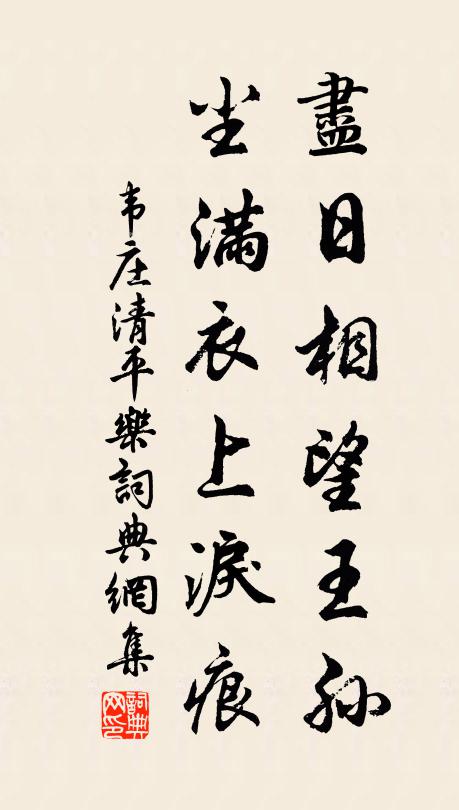 盡日相望王孫
尘滿衣上淚痕
韦庄清平樂詞典網集
詞典网印